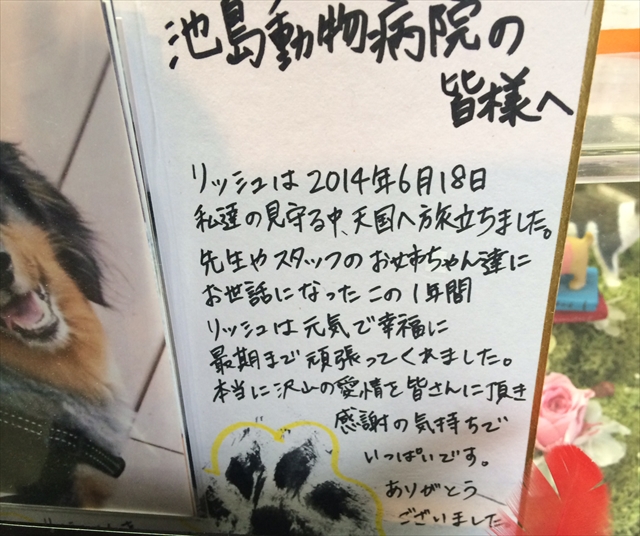 池島動物病院の
皆様へ
リッシュは2014年6月18日
私達の見守る中、天国へ旅立ちました。
先生やスタッフのお姉ちゃん達に
お世話になったこの1年間
リッシュは元気で幸福に
最期まで頑張ってくれました。
本当に沢山の愛情を皆さんに頂き
感謝の気持ちで
いっぱいです。
ありがとう
ございました